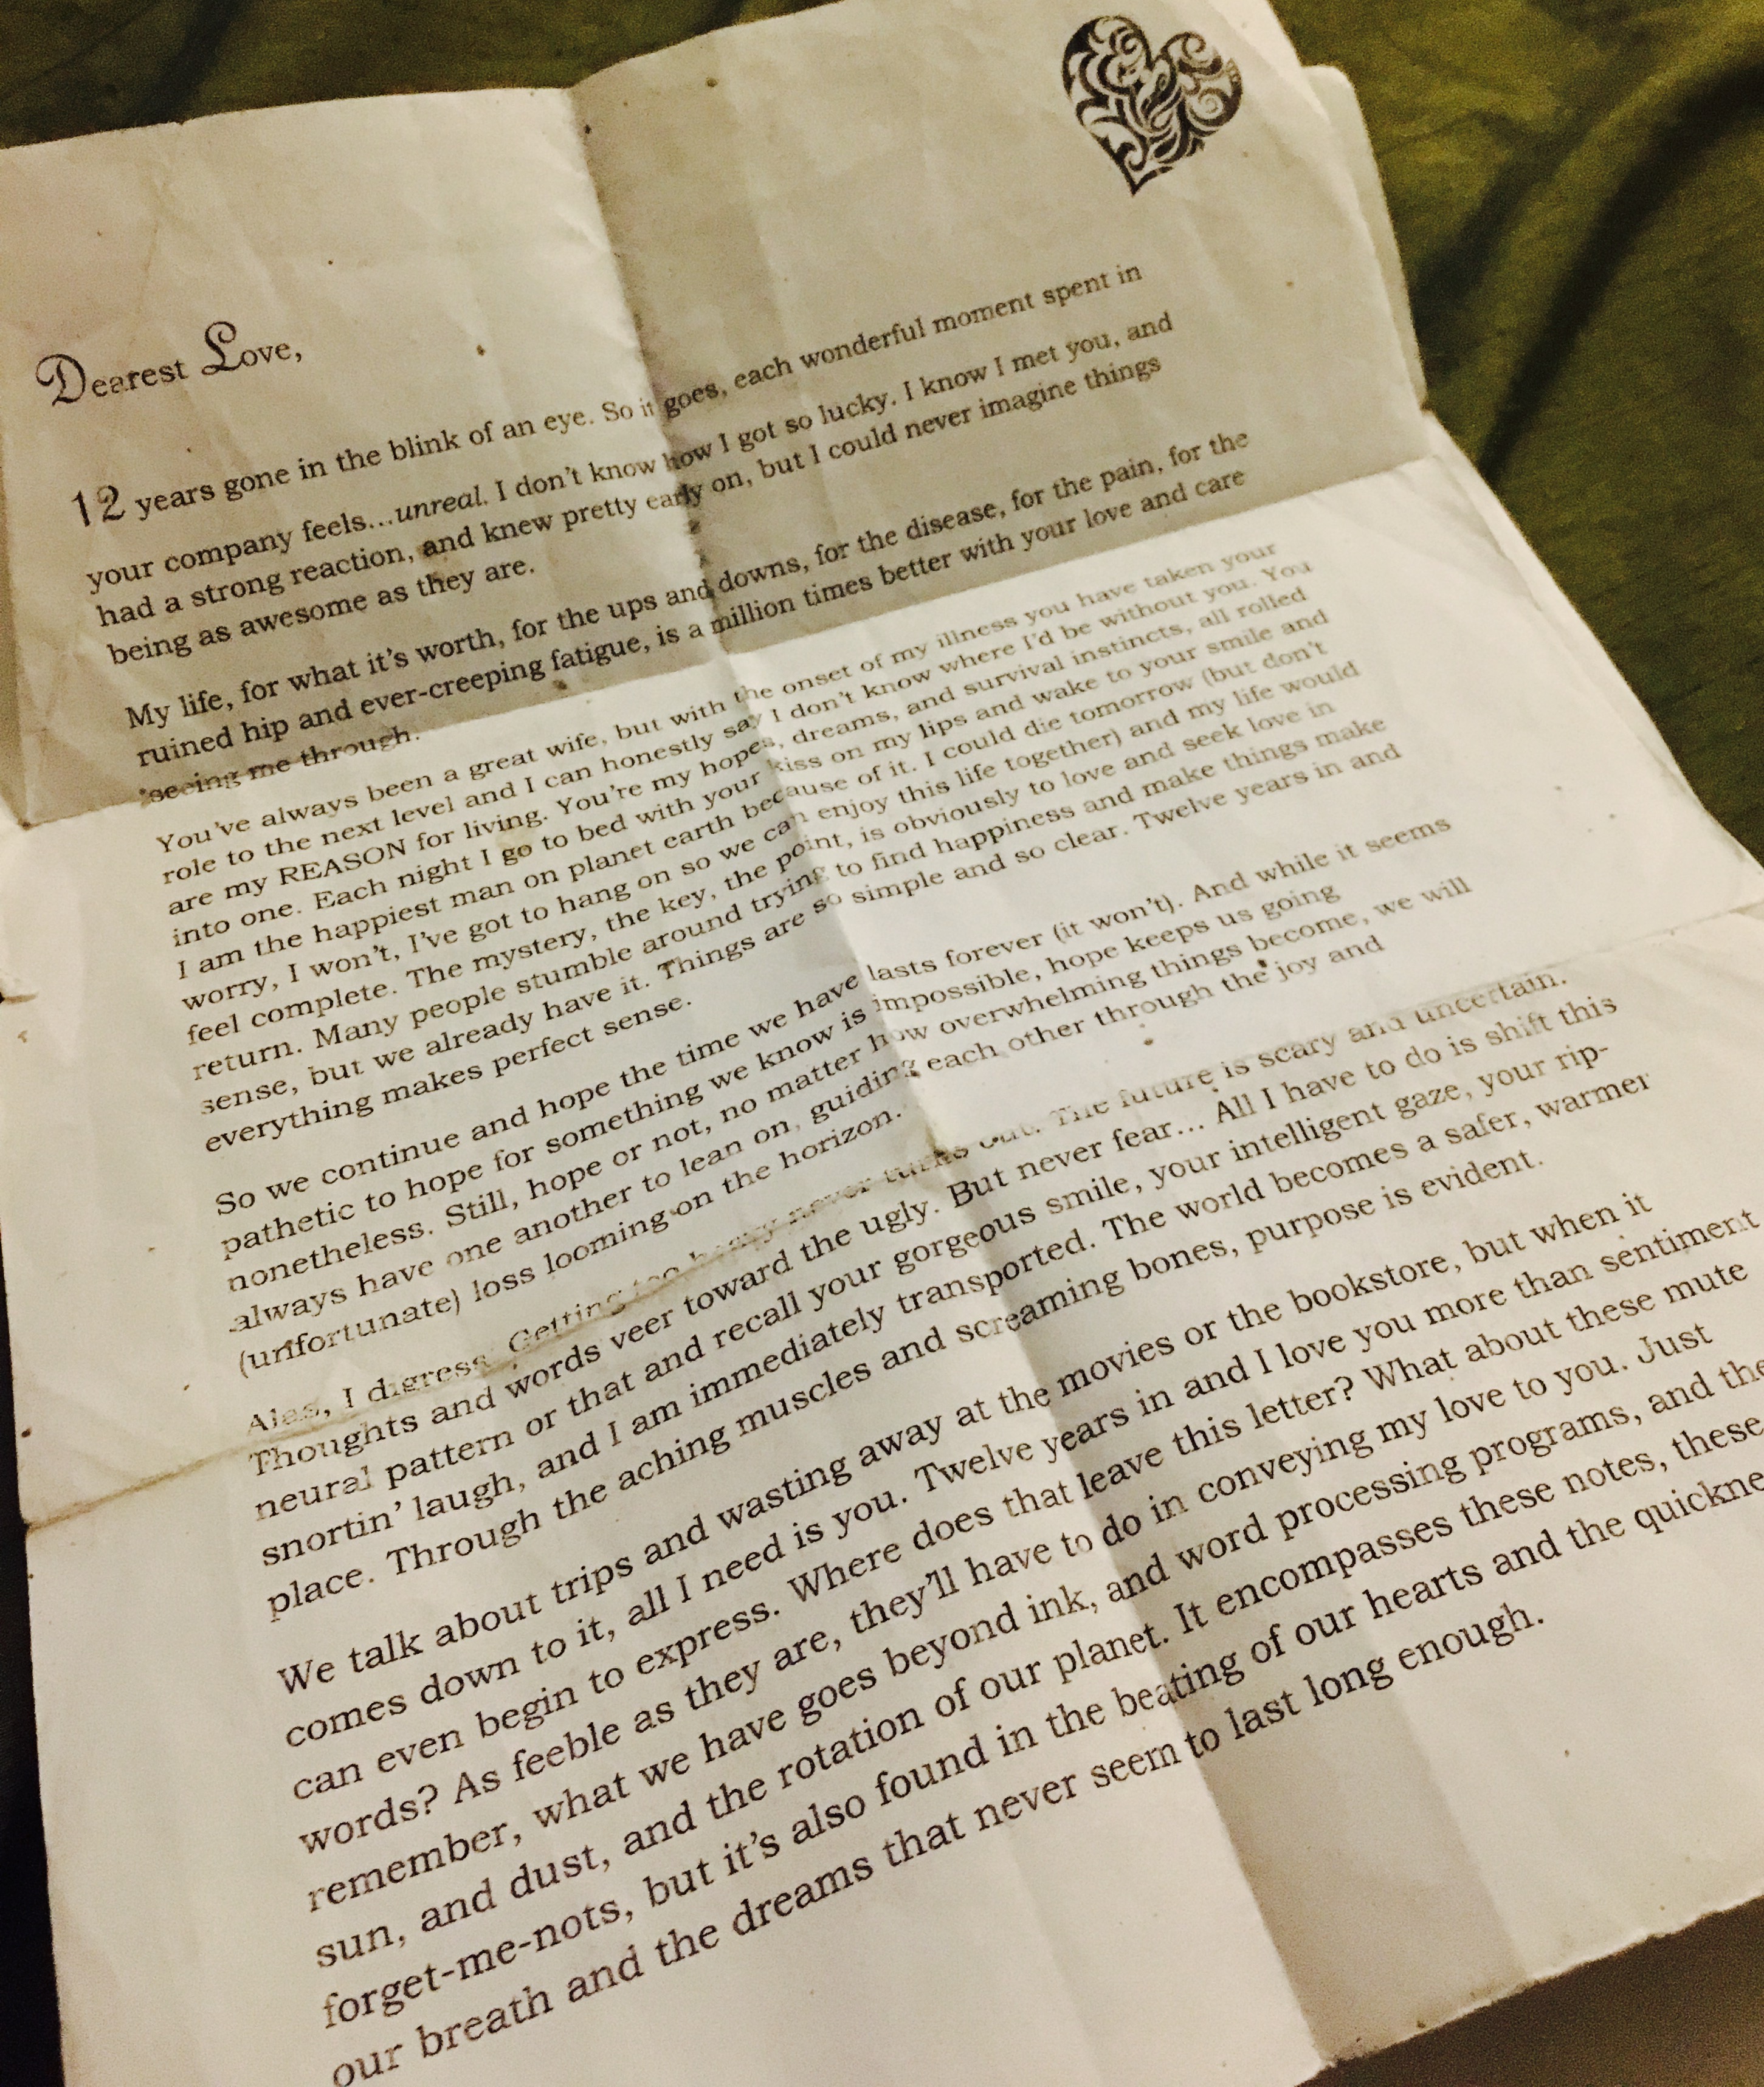 Dearest Love,
12 years gone in the blink of an eye. So it goes, each wonderful moment spent in
your company feels...unreal. I don't know how I got so lucky. I know I met you, and
had a strong reaction, and knew pretty early on, but I could never imagine things
being as awesome as they are.
My life, for what it's worth, for the ups and downs, for the disease, for the pain, for the
ruined hip and ever-creeping fatigue, is a million times better with your love and care
seeing me through.
You've always been a great wife, but with the onset of my illness you have taken your
role to the next level and I can honestly say I don't know where I'd be without you. You
are my REASON for living. You're my hopes, dreams, and survival instincts, all rolled
into one. Each night I go to bed with your kiss on my lips and wake to your smile and
I am the happiest man on planet earth because of it. I could die tomorrow (but don't
worry, I won't, I've got to hang on so we can enjoy this life together) and my life would
feel complete. The mystery, the key, the point, is obviously to love and seek love in
return. Many people stumble around trying to find happiness and make things make
sense, but we already have it. Things are so simple and so clear. Twelve years in and
everything makes perfect sense.
So we continue and hope the time we have lasts forever (it won't). And while it seems
pathetic to hope for something we know is impossible, hope keeps us going
nonetheless. Still, hope or not, no matter how overwhelming things become, we will
always have one another to lean on, guiding each other through the joy and
(unfortunate) loss looming on the horizon.
Alas, I digress. Getting too heavy never turns out. The future is scary and uncertain.
Thoughts and words veer toward the ugly. But never fear... All I have to do is shift this
neural pattern or that and recall your gorgeous smile, your intelligent gaze, your rip-
snortin' laugh, and I am immediately transported. The world becomes a safer, warmer
place. Through the aching muscles and screaming bones, purpose is evident.
We talk about trips and wasting away at the movies or the bookstore, but when it
comes down to it, all I need is you. Twelve years in and I love you more than sentiment
can even begin to express. Where does that leave this letter? What about these mute
words? As feeble as they are, they'll have to do in conveying my love to you. Just
remember, what we have goes beyond ink, and word processing programs, and the
sun, and dust, and the rotation of our planet. It encompasses these notes, these
forget-me-nots, but it's also found in the beating of our hearts and the
our breath and the dreams that never seem to last long enough.